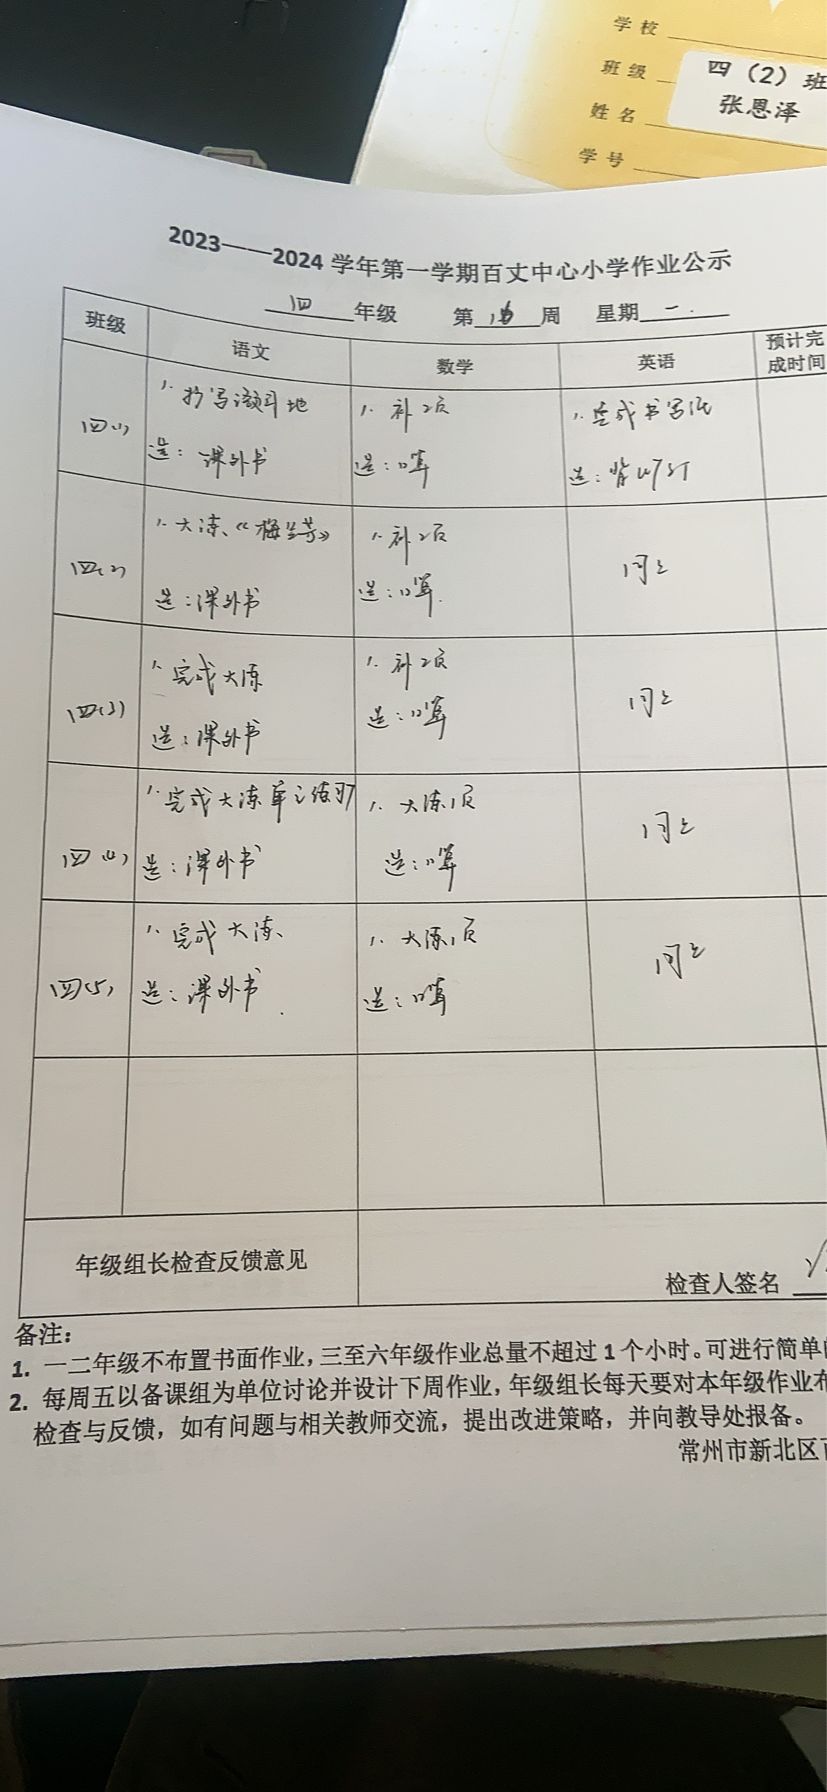 学校
班级 四（2）班
姓名 张恩泽
学号
2023——2024 学年第一学期百丈中心小学作业公示
四 年级 第 周 星期 一.
班级 语文 数学 英语 预计完成时间
四(1) 1. 抄写 地 1. 补2页 1. 完成书写纸
选：课外书 选：口算 选：背
四(2) 1. 大练、《梅兰芳》 1. 补2页 同上
选：课外书 选：口算.
四(3) 1. 完成大练 1. 补2页 同上
选：课外书 选：口算
四(4) 1. 完成大练单元练习 1. 大练1页 同上
选：课外书 选：口算
四(5) 1. 完成大练、 1. 大练1页 同上
选：课外书. 选：口算
年级组长检查反馈意见 检查人签名
备注：
1. 一二年级不布置书面作业，三至六年级作业总量不超过 1 个小时。可进行简单
2. 每周五以备课组为单位讨论并设计下周作业，年级组长每天要对本年级作业布
检查与反馈，如有问题与相关教师交流，提出改进策略，并向教导处报备。
常州市新北区百